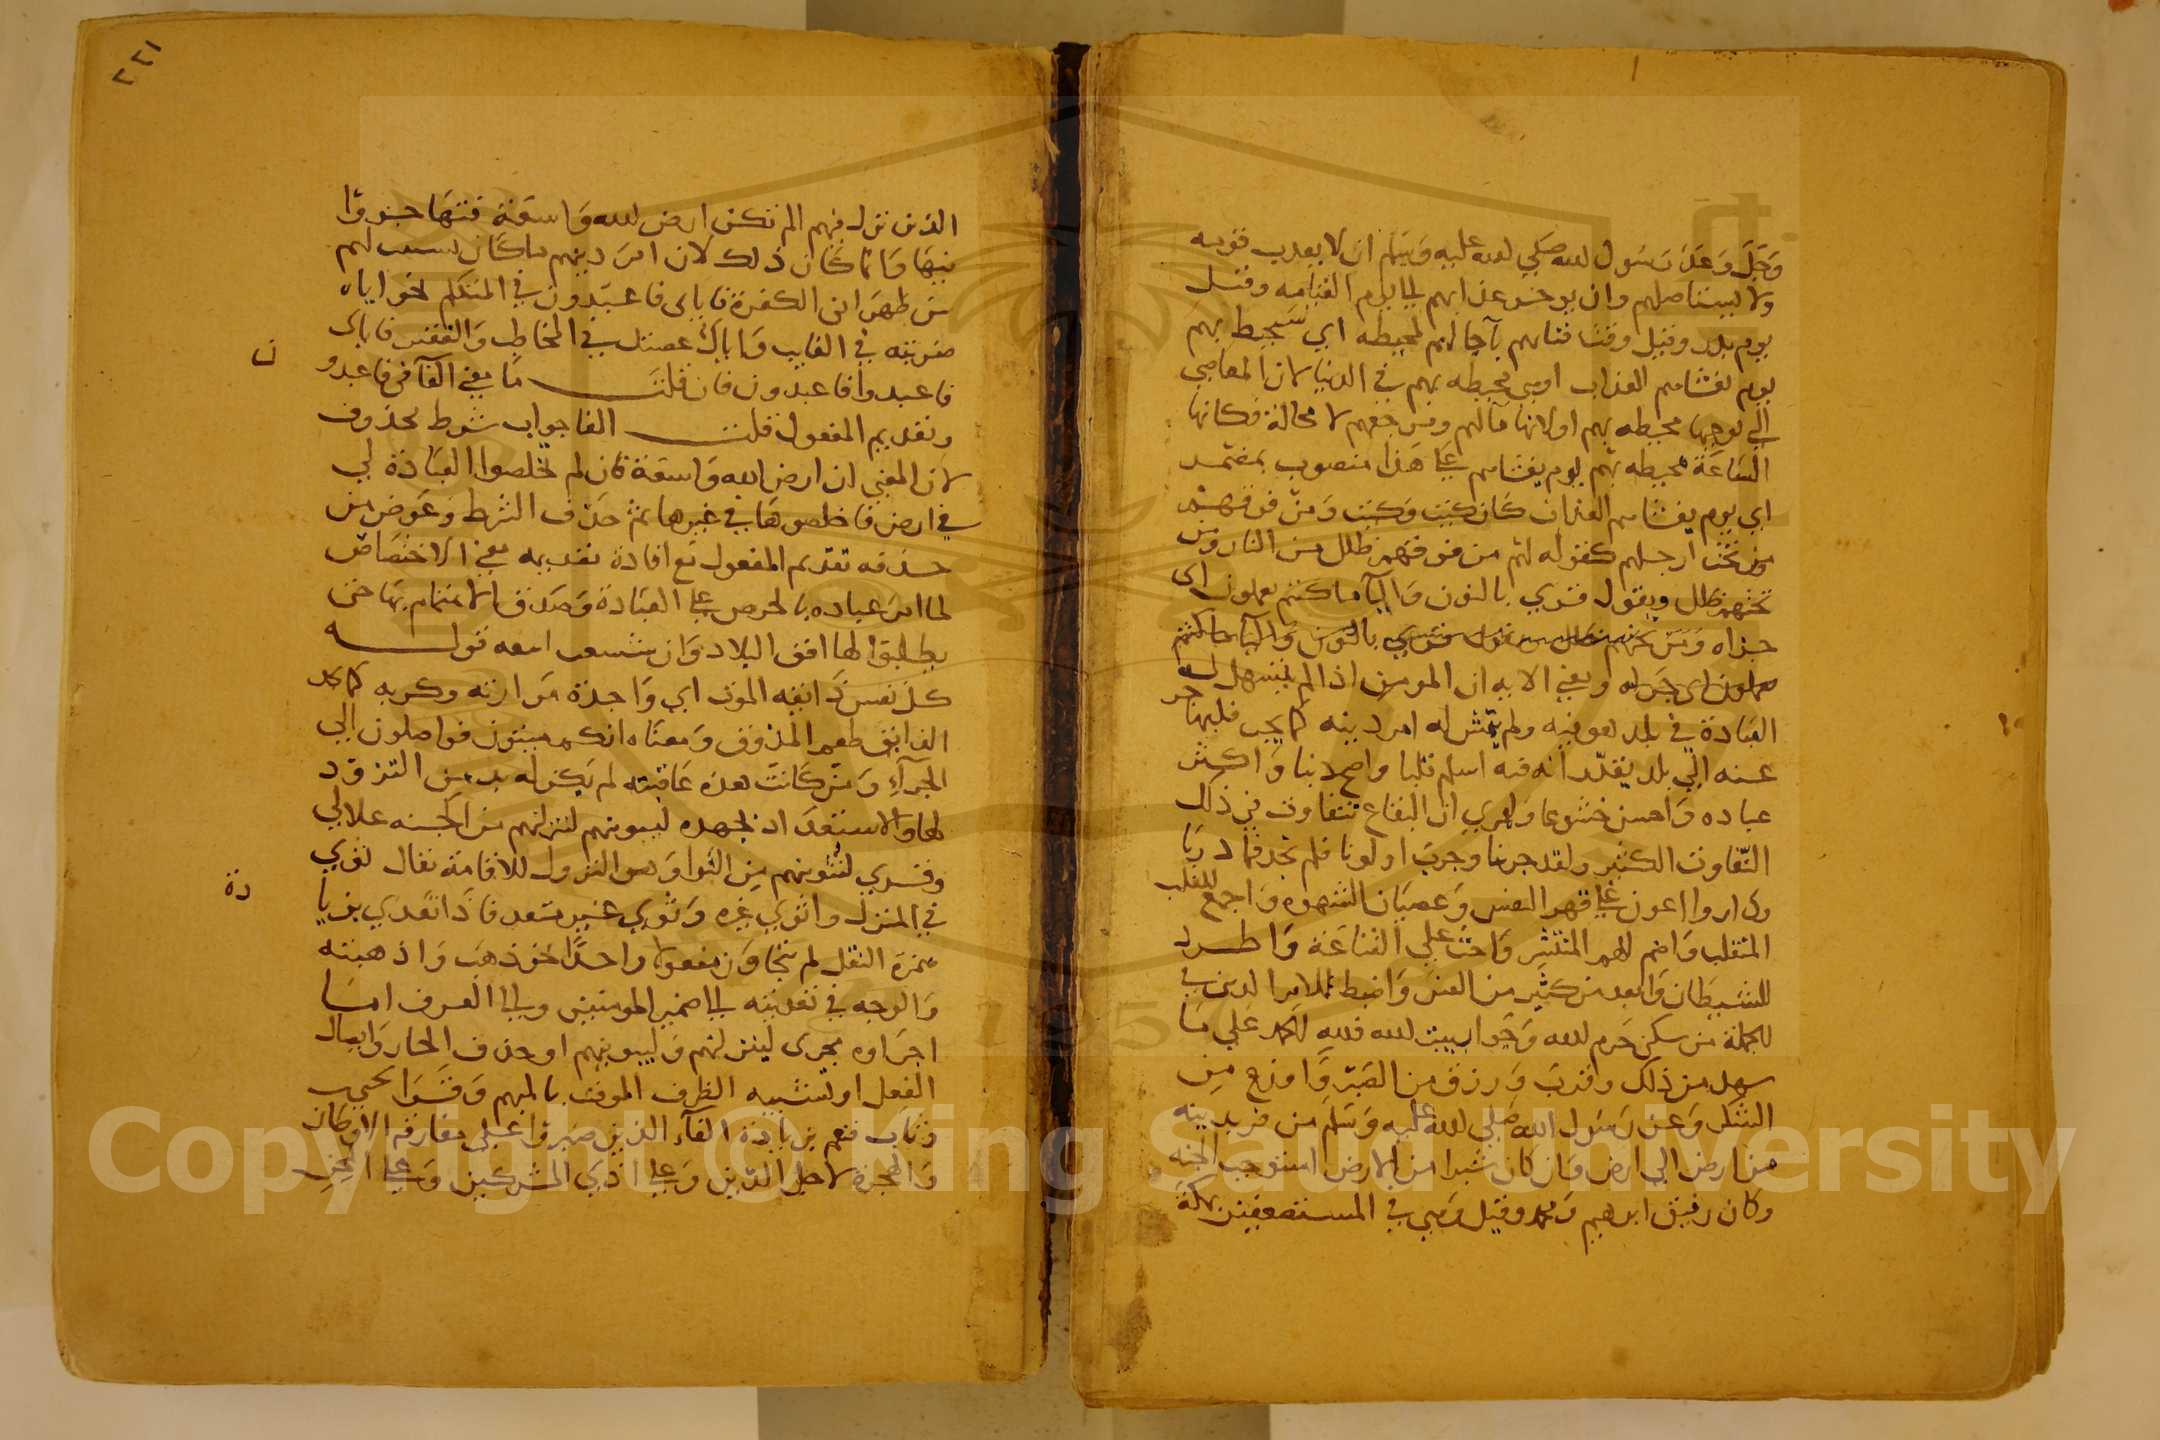 وجل وعد رسول الله صلى الله عليه وسلم ان لا يعذب قومه
ولا يستاصلهم وان يوخر عذابهم الى يوم القيامه وقيل
يوم بدر وقيل وقت فنائهم بآجالهم لمحيطه اي سيحيط بهم
يوم يغشاهم العذاب او هي محيطه بهم في الدنيا لان المعاصي
التي توجبها محيطه بهم او لانها مآلهم ومرجعهم لا محالة فكانها
الساعة محيطه بهم يوم يغشاهم على هذا منصوب بمضمر
اي يوم يغشاهم العذاب كان كيت وكيت ومن فوقهم
ومن تحت ارجلهم كقوله لهم من فوقهم ظلل من النار ومن
تحتهم ظلل ويقول قري بالنون واليا ما كنتم تعملون اي
جزاه
ومعنى الايه ان المومن اذا لم يتسهل له
العبادة في بلد هو فيه ولم يتمش له امر دينه كما يجب فليهاجر
عنه الى بلد يقدر انه فيه اسلم قلبا واصح دينا واكثر
عباده واحسن خشوعا ولعمري ان البقاع تتفاوت في ذلك
التفاوت الكثير ولقد جربنا وجرب اولونا فلم نجد فيما درنا
وداروا اعون على قهر النفس وعصيان الشهوه واجمع للقلب
المتقلب واضم للهم المنتشر واحث على القناعة واطرد
للشيطان وابعد من كثير من الفتن واضبط للامر الديني في
الجملة من سكنى حرم الله وجوار بيت الله فلله الحمد على ما
سهل من ذلك وقرب ورزق من الصبر واوزع من
الشكر وعن رسول الله صلى الله عليه وسلم من فر بدينه
من ارض الى ارض وان كان شبرا من الارض استوجب الجنه
وكان رفيق ابرهيم ومحمد وقيل وهي في المستضعفين بمكة
٢٢١
الذين نزل فيهم الم تكن ارض الله واسعة فتهاجروا
فيها وانما كان ذلك لان امر دينهم ما كان يستتب لهم
بين ظهراني الكفرة فاياي فاعبدون في المتكلم نحو اياه
ضربته في الغايب واياك عضتك في المخاطب والتقدير فاياي
ن
فاعبدوا فاعبدون فان قلت ما معنى الفآ في فاعبدو
وتقديم المفعول قلت الفا جواب شرط محذوف
لان المعنى ان ارض الله واسعة فان لم تخلصوا العبادة لي
في ارض فاخلصوها في غيرها ثم حذف الشرط وعوض من
حذفه تقديم المفعول مع افادة تقديمه معنى الاختصاص
لما امر عباده بالحرص على العبادة وصدق الاهتمام بها حتى
يطلبوا لها اوفق البلاد وان شسعت اتبعه قوله
كل نفس ذائقه الموت اي واجدة مرارته وكربه كما يجد
الذايق طعم المذوق ومعناه انكم ميتون فواصلون الى
الجزآء ومن كانت هذه عاقبته لم يكن له بد من التزود
لها والاستعداد بجهده لنبوينهم لننزلنهم من الجنه علالي
وقري لنثوينهم من الثوا وهو النزول للاقامة يقال ثوي
دة
في المنزل واثوي غيره وثوي غير متعد فاذا تعدي بزيا
همزة النقل لم يتجاوز مفعولا واحدا نحو ذهب واذهبته
والوجه في تعديته الى ضمير المومنين والى الغرف اما
اجراوه مجرى لننزلنهم ولنبوينهم او حذف الجار وايصال
الفعل او تشبيه الظرف الموقت بالمبهم وقرا يحيى
وثاب فنعم بزيادة الفآء الذين صبروا على مفارقة الاوطان
والهجرة لاجل الدين وعلى اذي المشركين وعلى المحن
Copyright © King Saud University
1957